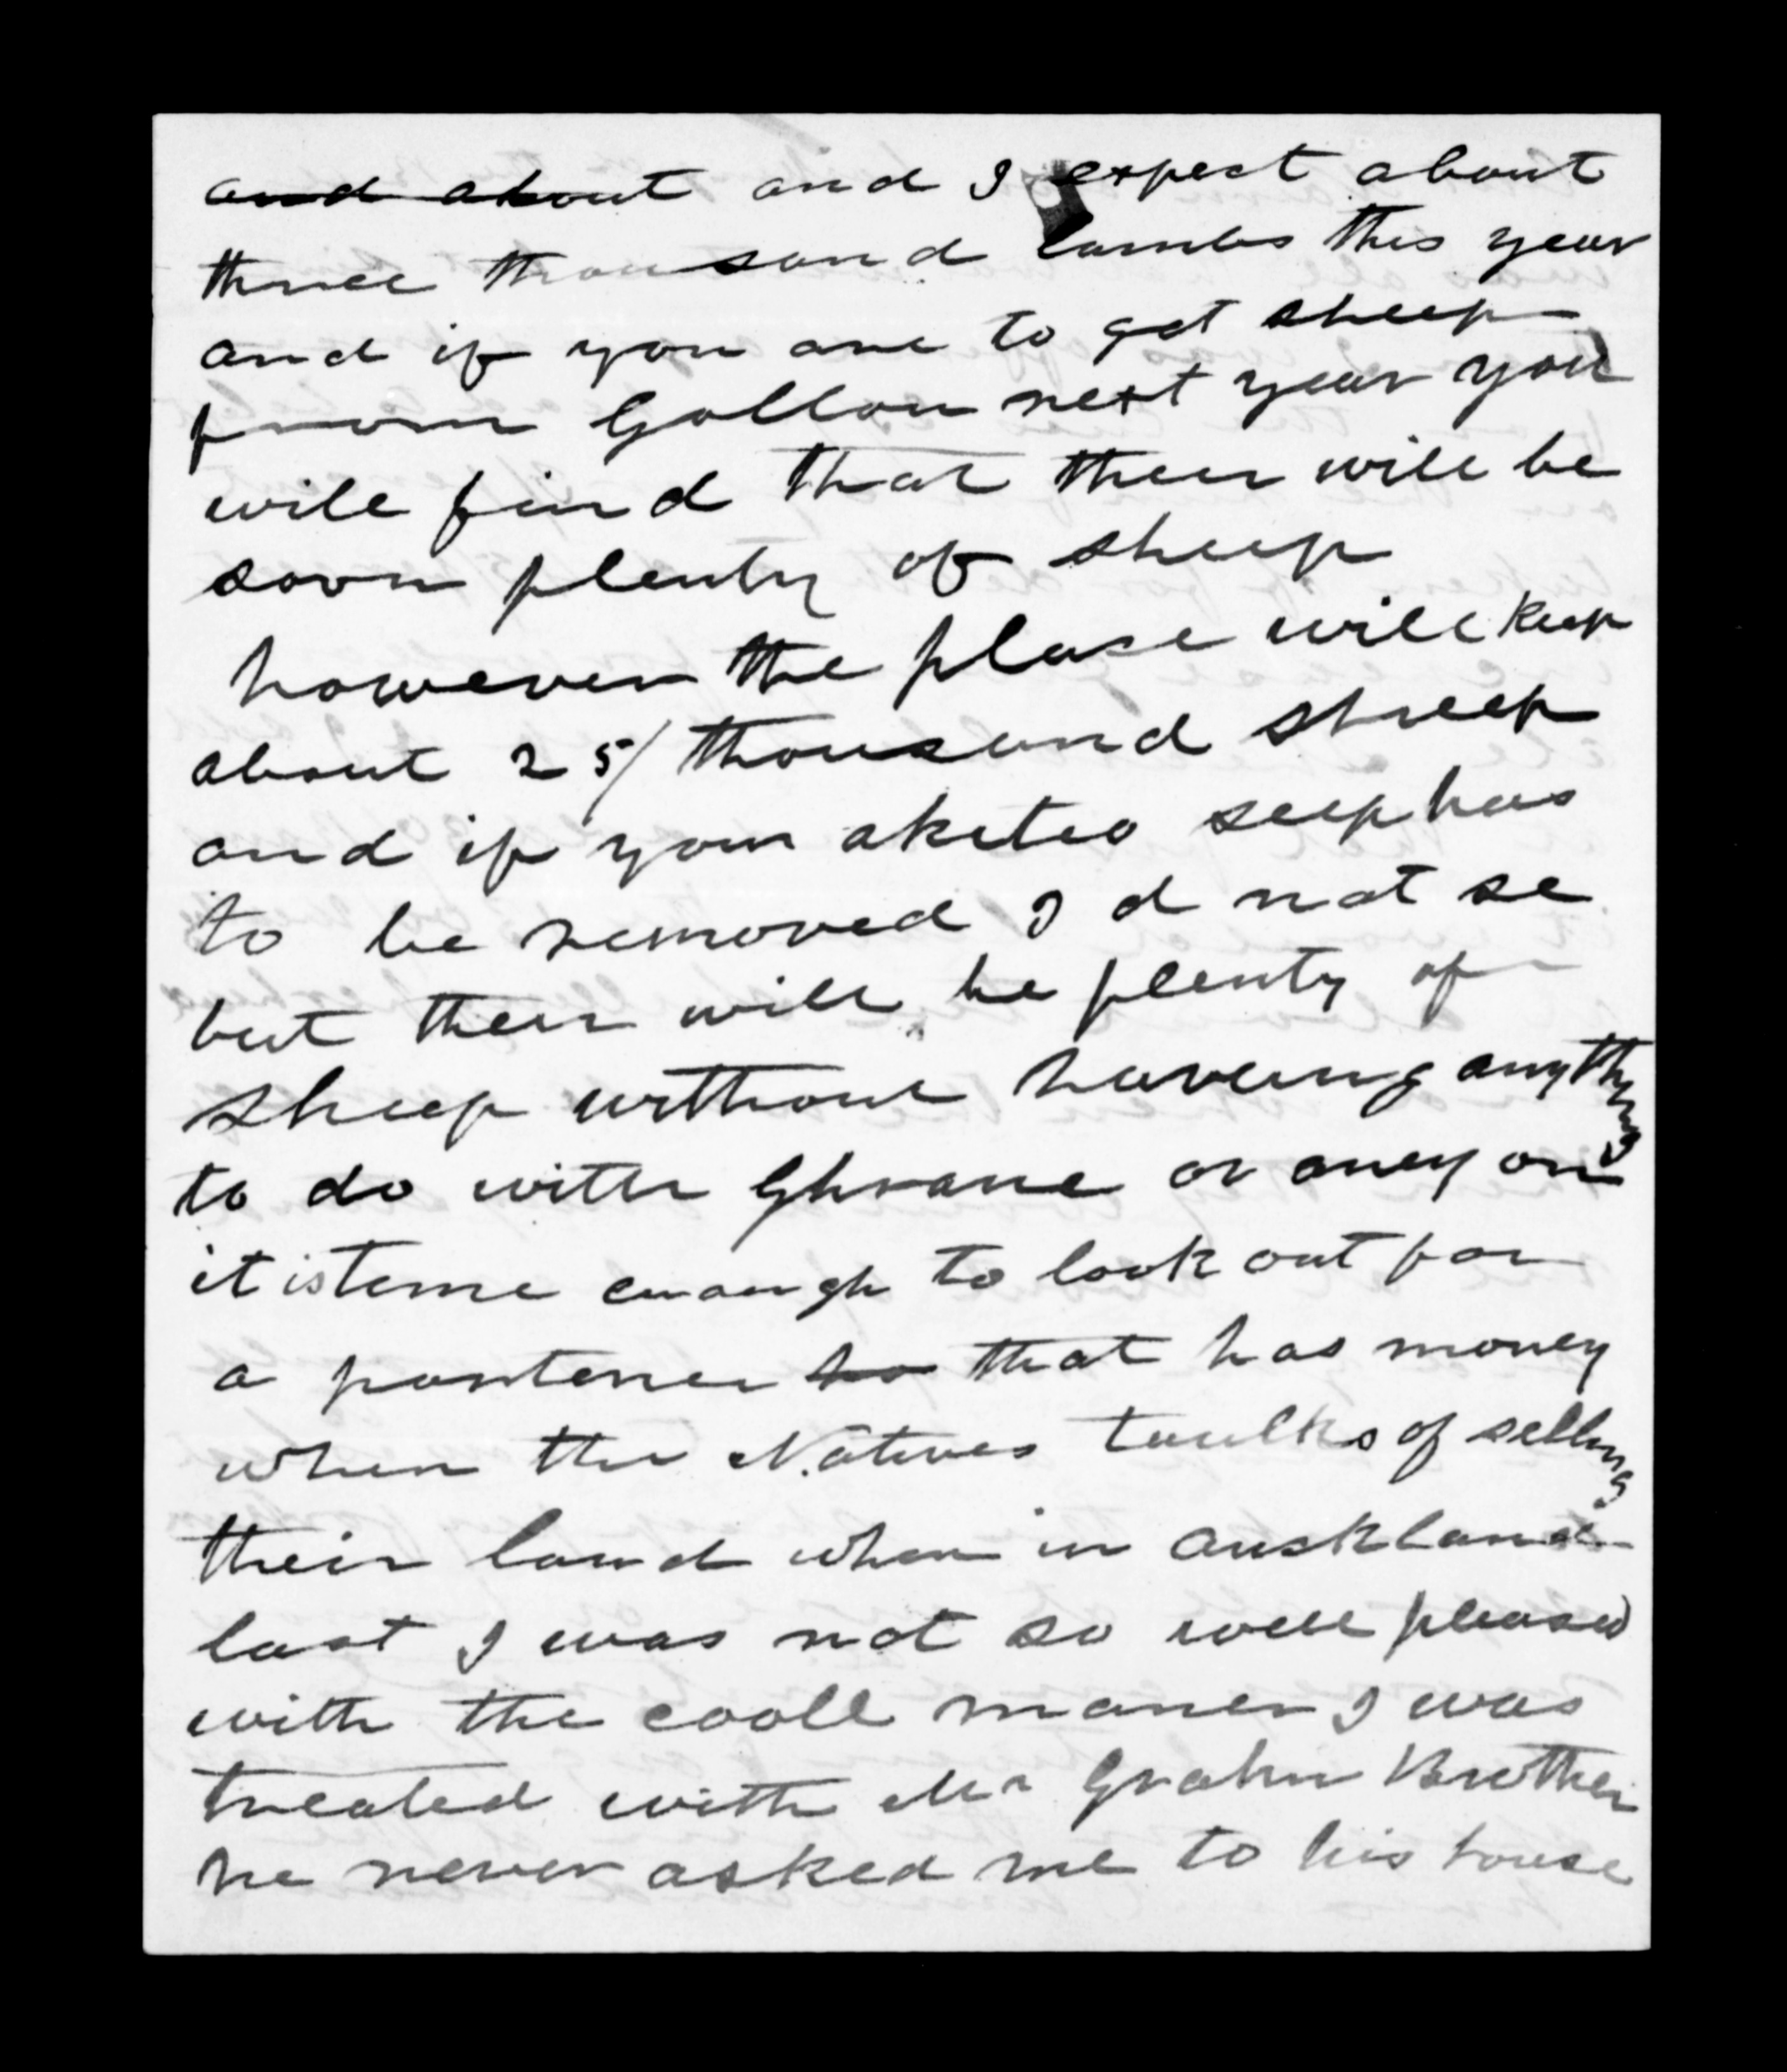 and about and I expect about
three thousand lambs this year
and if you are to get sheep
from Gollan next year you
will find that their will be
soon plenty of sheep
however the plase will keep
about 25/ thousand sheep
and if your aketeo seep has
to be removed I d not se
but their will be plenty of
sheep without haveing anything
to do with Ghrane or aney on
it is teme enough to look out for
a partener ho that has money
when the Natives taulks of selling
their land when in Auskland
last I was not so well pleased
with the cooll maner I was
treated with Mr Grahm Brother
he never asked me to his house